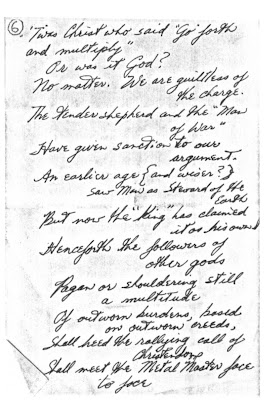 6
'Twas Christ who said "Go forth
and multiply"
Or was it God?
No matter. We are guiltless of
the charge.
The tender shepherd and the "Man
of War"
Have given sanction to our
argument.
An earlier age {and wiser?}
saw Man as Steward of the
Earth
But now the "King" has claimed
it as his own
Henceforth the followers of
other gods
Pagan or shouldering still
a multitude
Of outworn burdens, based
on outworn creeds,
Shall heed the rallying call of
Christendom
Shall meet the Metal Master face
to face